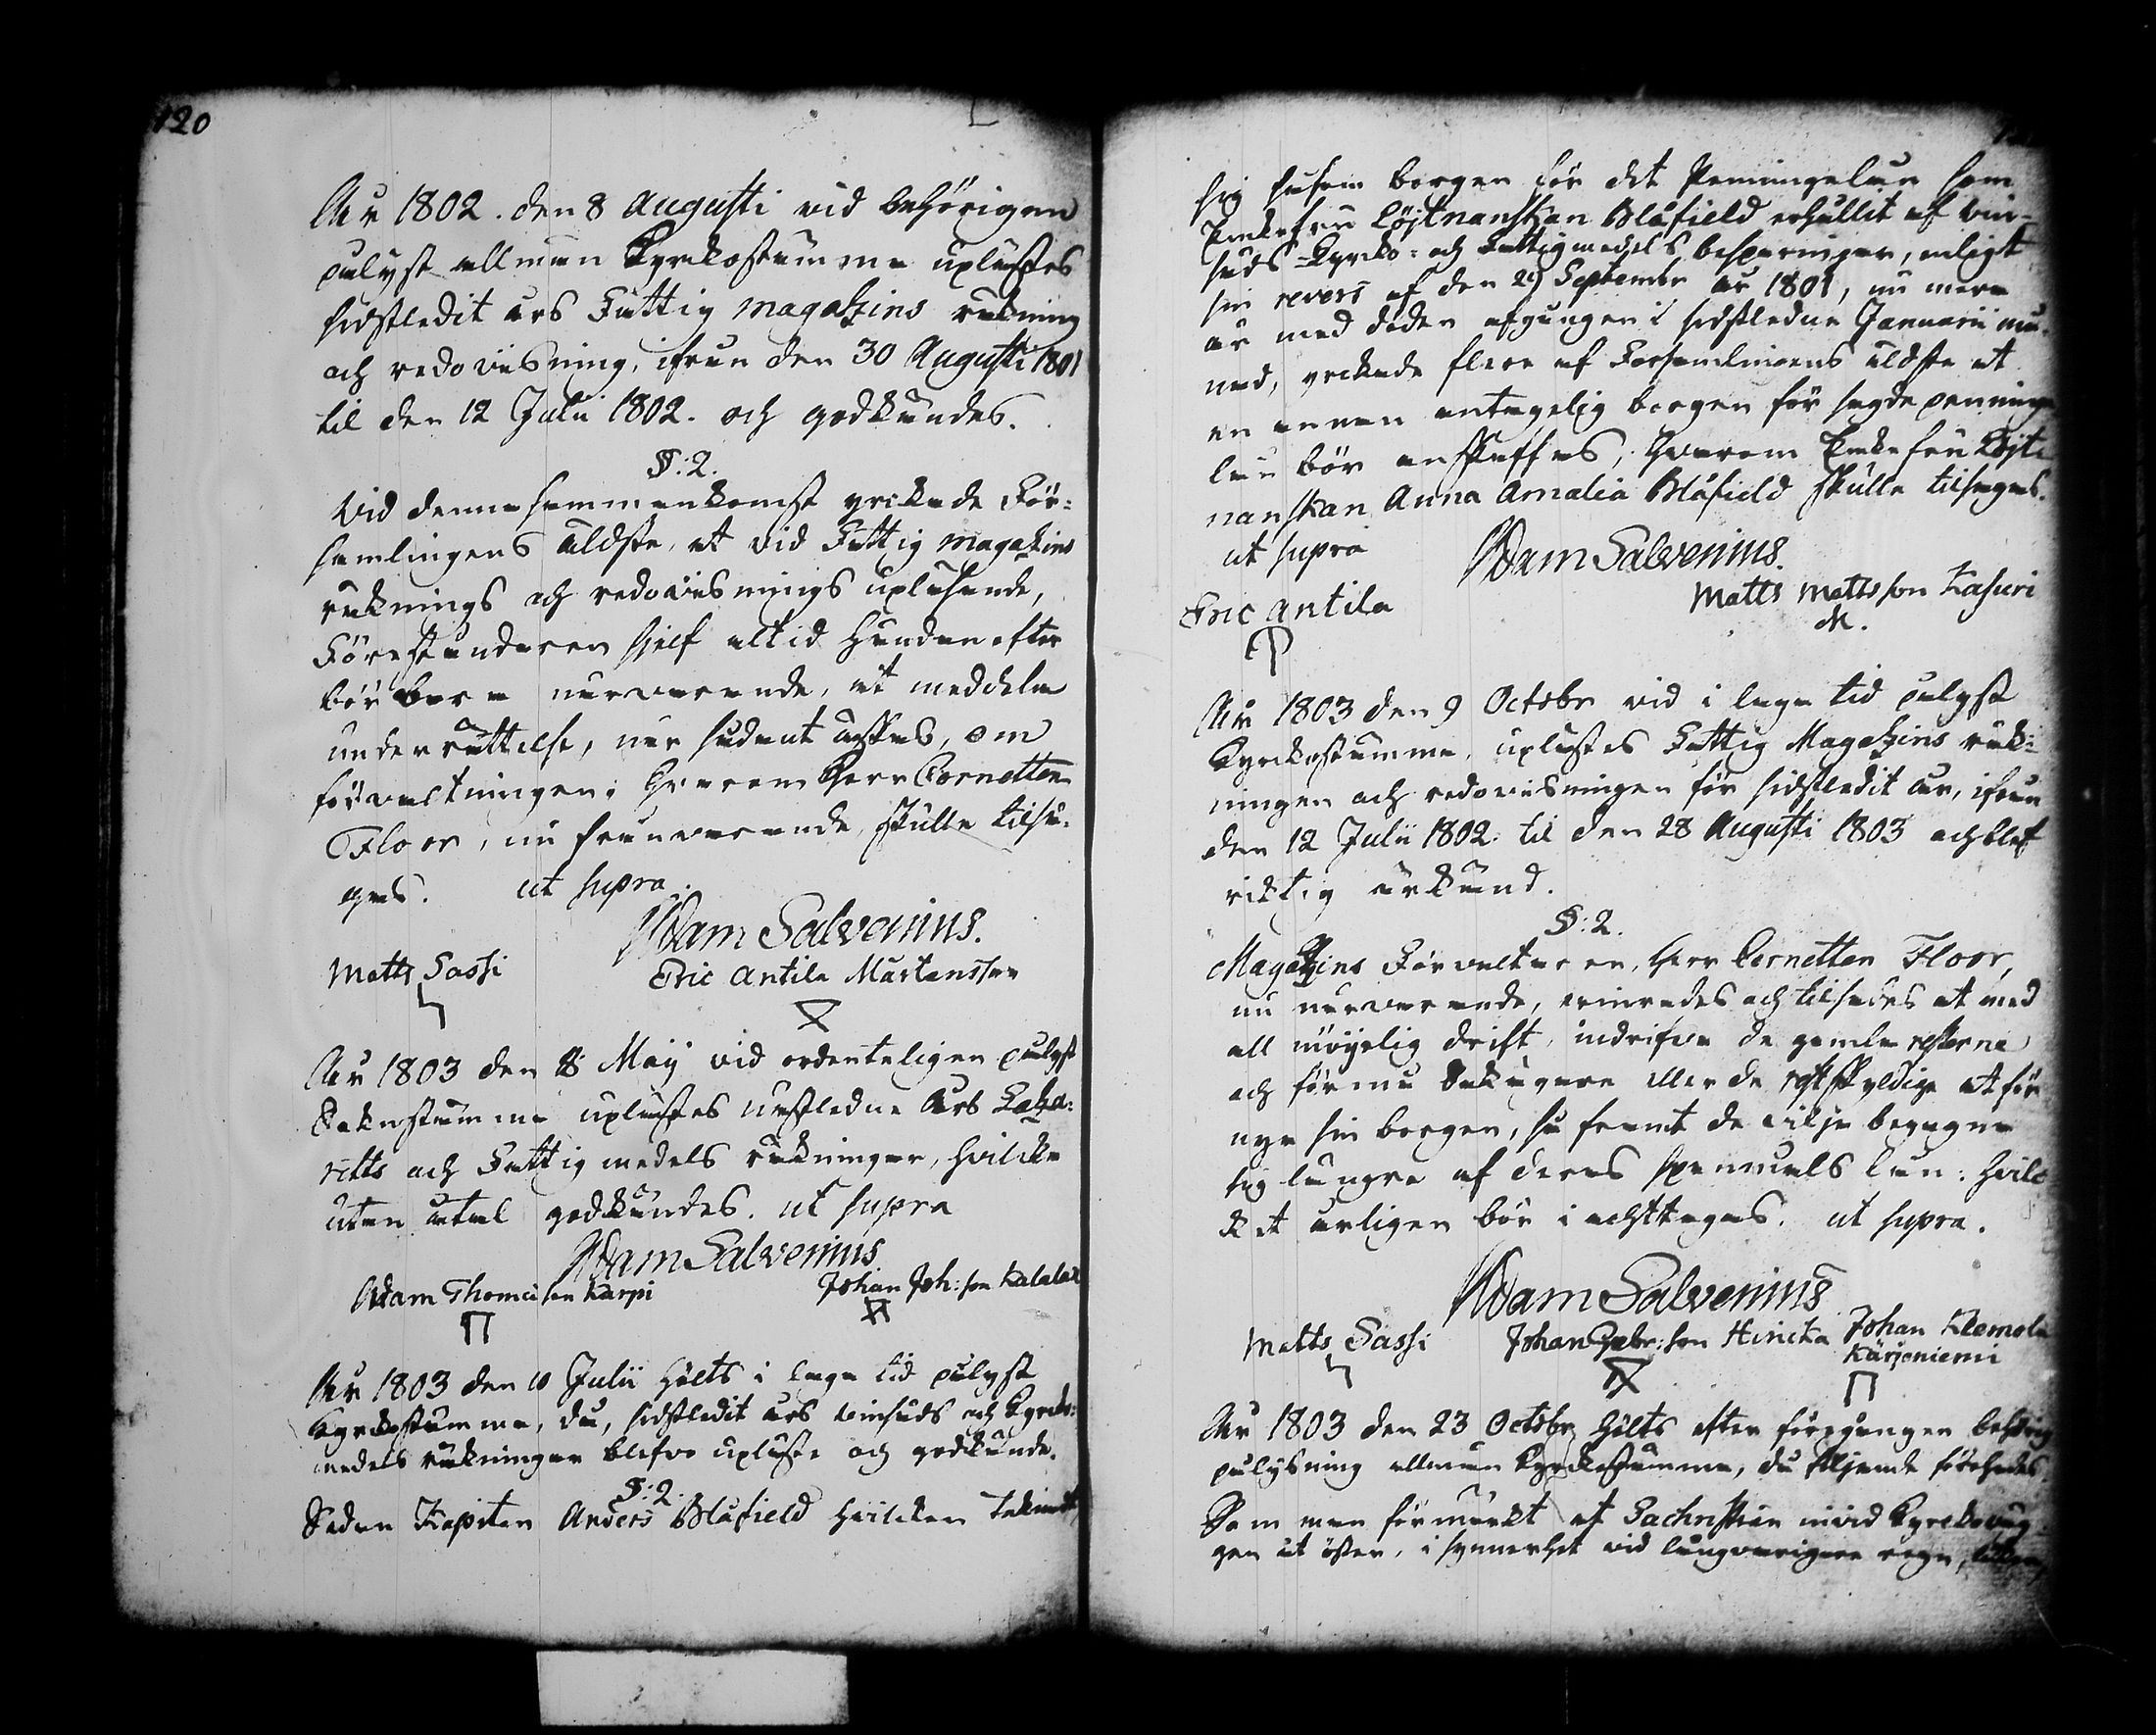 120
År 1802. den 8 Augusti vid behörigen
pålyst allmän Kyrkostämma uplästes
sidstledit års Fattig magazins räkning
och redovisning, ifrån den 30 Augusti 1801
til den 12 Julii 1802. och godkändes.
§: 2.
Vid denna sammankomst yrkade För-
samlingens äldste, at vid Fattig magazins
räknings och redovisnings upläsande,
Föreståndaren sjelf altid hundanefter
bör vara närvarande, at meddela
underrättelse, när sådant äskas, om
förvaltningen; hvarom Herr Cornetten
Floor, nu frånvarande, skulle tilsä-
gas. ut supra.
Adam Salvenius.
Matts Sassi
Eric Antila Mårtensson
År 1803 den 8 Maij vid ordenteligen pålyst
Soknestämma uplästes nästledne års Laza-
retts och Fattig medels räkningar, hvilka
utan åtal godkändes. ut supra
Adam Salvenius.
Adam Thomasson Karpi
Johan Joh:son Kalalax
År 1803 den 10 Julii hölts i laga tid pålyst
Kyrkostämma, då, sidstledit års vinsäds och Kyrko-
medels räkningar blefvo upläste och godkände.
§: 2.
Sedan Kapiten Anders Blåfield hvilken teknat
sig såsom borgen för det Penningelån som
Enkefru Löjtnanskan Blåfield erhållit af vin-
säds- Kyrko- och Fattigmedels besparingar, enligt
sin revers af den 29 September år 1801, nu mera
är med döden afgången i sidstledne Januarii må-
nad, yrkade flere af Församlingens äldste at
en annan antagelig borgen för sagde penninge
lån bör anskaffas; hvarom Enkefru Löjt-
nanskan Anna Amalia Blåfield skulle tilsägas.
ut supra
Adam Salvenius.
Eric Antila
Matts Mattsson Kasuri
År 1803 den 9 Octobr vid i laga tid pålyst
Kyrkostämma, uplästes Fattig Magazins räk-
ningen och redovisningen för sidstledit år, ifrån
den 12 Julii 1802 til den 28 Augusti 1803 och blef
riktig ärkänd.
§: 2.
Magazins Förvaltaren, Herr Cornetten Floor,
nu närvarande, erinrades och tilsades at med
all möjelig drift, indrifva de gamla resterna
och förmå låntagare eller de restskyldige at för-
nya sin borgen, så framt de vilja begagna
sig längre af deras spanmåls lån: hvil-
ket årligen bör i akttagas. ut supra.
Adam Salvenius
Matts Sassi
Johan Gabr:son Hircka
Johan Klemola
Karjeniemi
År 1803 den 23 Octobr hölts efter föregången behörig
pålysning allmän Kyrkostämma, då följande förehades.
Som man förmärkt at Sachristian invid Kyrkoväg-
gen åt öster, i synnerhet vid långvarigare regn,